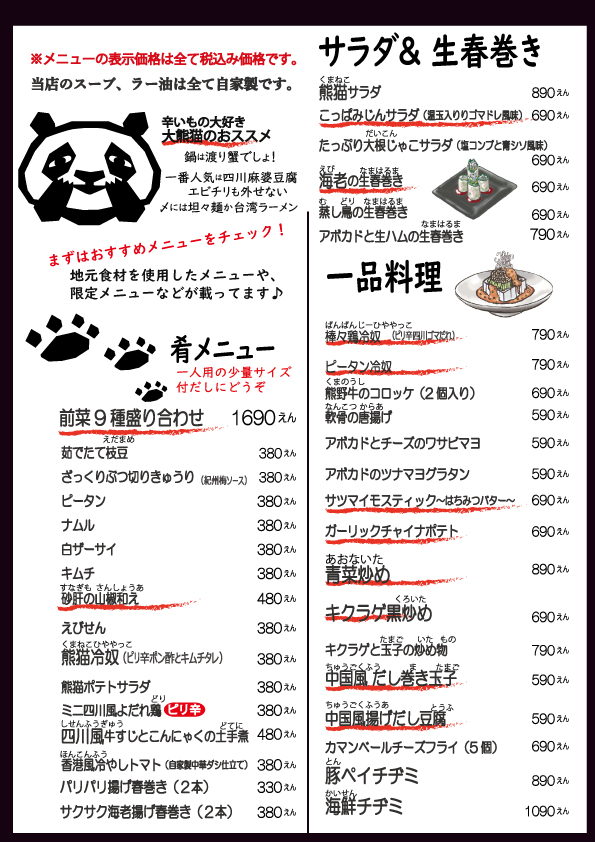 ※メニューの表示価格は全て税込み価格です。
当店のスープ、ラー油は全て自家製です。
辛いもの大好き
大熊猫のおススメ
鍋は渡り蟹でしょ！
一番人気は四川麻婆豆腐
エビチリも外せない
〆には坦々麺か台湾ラーメン
まずはおすすめメニューをチェック！
地元食材を使用したメニューや、
限定メニューなどが載ってます♪
肴メニュー
一人用の少量サイズ
付だしにどうぞ
前菜９種盛り合わせ 1690えん
えだまめ
茹でたて枝豆 380えん
ざっくりぶつ切りきゅうり（紀州梅ソース） 380えん
ピータン 380えん
ナムル 380えん
白ザーサイ 380えん
キムチ 380えん
すなぎも さんしょうあ
砂肝の山椒和え 480えん
えびせん 380えん
くまねこひややっこ
熊猫冷奴（ピリ辛ポン酢とキムチタレ） 380えん
熊猫ポテトサラダ 380えん
どり
ミニ四川風よだれ鶏 ピリ辛 380えん
しせんふうぎゅう どてに
四川風牛すじとこんにゃくの土手煮 480えん
ほんこんふう
香港風冷やしトマト（自家製中華ダシ仕立て） 380えん
パリパリ揚げ春巻き（２本） 330えん
サクサク海老揚げ春巻き（２本） 380えん
サラダ& 生春巻き
くまねこ
熊猫サラダ 890えん
こっぱみじんサラダ（温玉入りりゴマドレ風味） 690えん
だいこん
たっぷり大根じゃこサラダ（塩コンブと青シソ風味）
690えん
えび なまはるま
海老の生春巻き 690えん
む どり なまはるま
蒸し鳥の生春巻き 690えん
なまはるま
アボカドと生ハムの生春巻き 790えん
一品料理
ばんばんじーひややっこ
棒々鶏冷奴（ピリ辛四川ゴマだれ） 790えん
ピータン冷奴 790えん
くまのうし
熊野牛のコロッケ（２個入り） 690えん
なんこつ からあ
軟骨の唐揚げ 590えん
アボカドとチーズのワサビマヨ 590えん
アボカドのツナマヨグラタン 590えん
サツマイモスティック〜はちみつバター〜 690えん
ガーリックチャイナポテト 690えん
あおないた
青菜炒め 890えん
くろいた
キクラゲ黒炒め 690えん
たまご いた もの
キクラゲと玉子の炒め物 790えん
ちゅうごくふう ま たまご
中国風 だし巻き玉子 590えん
ちゅうごくふうあ とうふ
中国風揚げだし豆腐 590えん
カマンベールチーズフライ（５個） 690えん
とん
豚ペイチヂミ 890えん
かいせん
海鮮チヂミ 1090えん